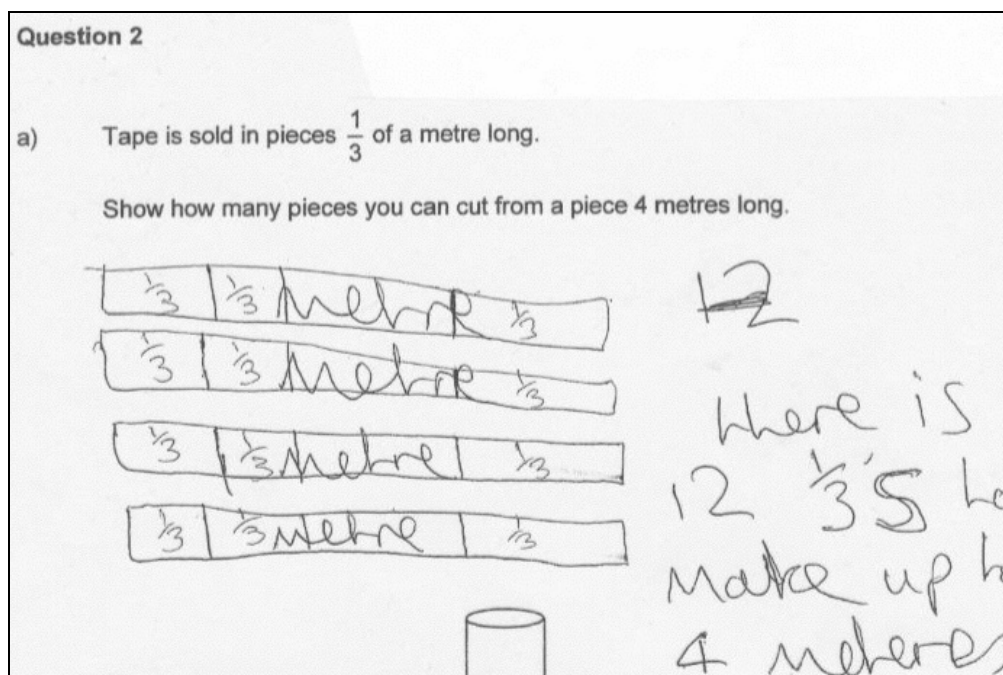 Question 2
a) Tape is sold in pieces 1/3 of a metre long.
Show how many pieces you can cut from a piece 4 metres long.
1/3 1/3 Metre 1/3
12
1/3 1/3 Metre 1/3
1/3 1/3 Metre 1/3
1/3 1/3 metre 1/3
there is
12 1/3's
Make up
4 meteres